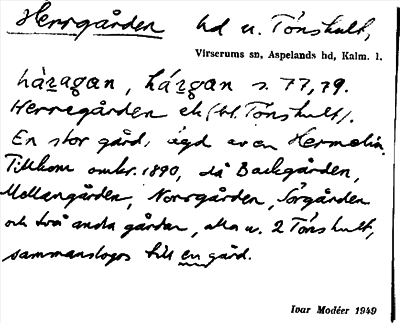 Herrgården hd u. Tönshult,
Virserums sn, Aspelands hd, Kalm. l.
hàragan, hárgan s. 77, 79.
Herregården ek (bl. Tönshult).
En stor gård, ägd av en Hermelin.
Tillkom omkr. 1890, då Backgården,
Mellangården, Norrgården, Sörgården
och två andra gårdar, alla u. 2 Tönshult,
sammanslogos till en gård.
Ivar Modéer 1949